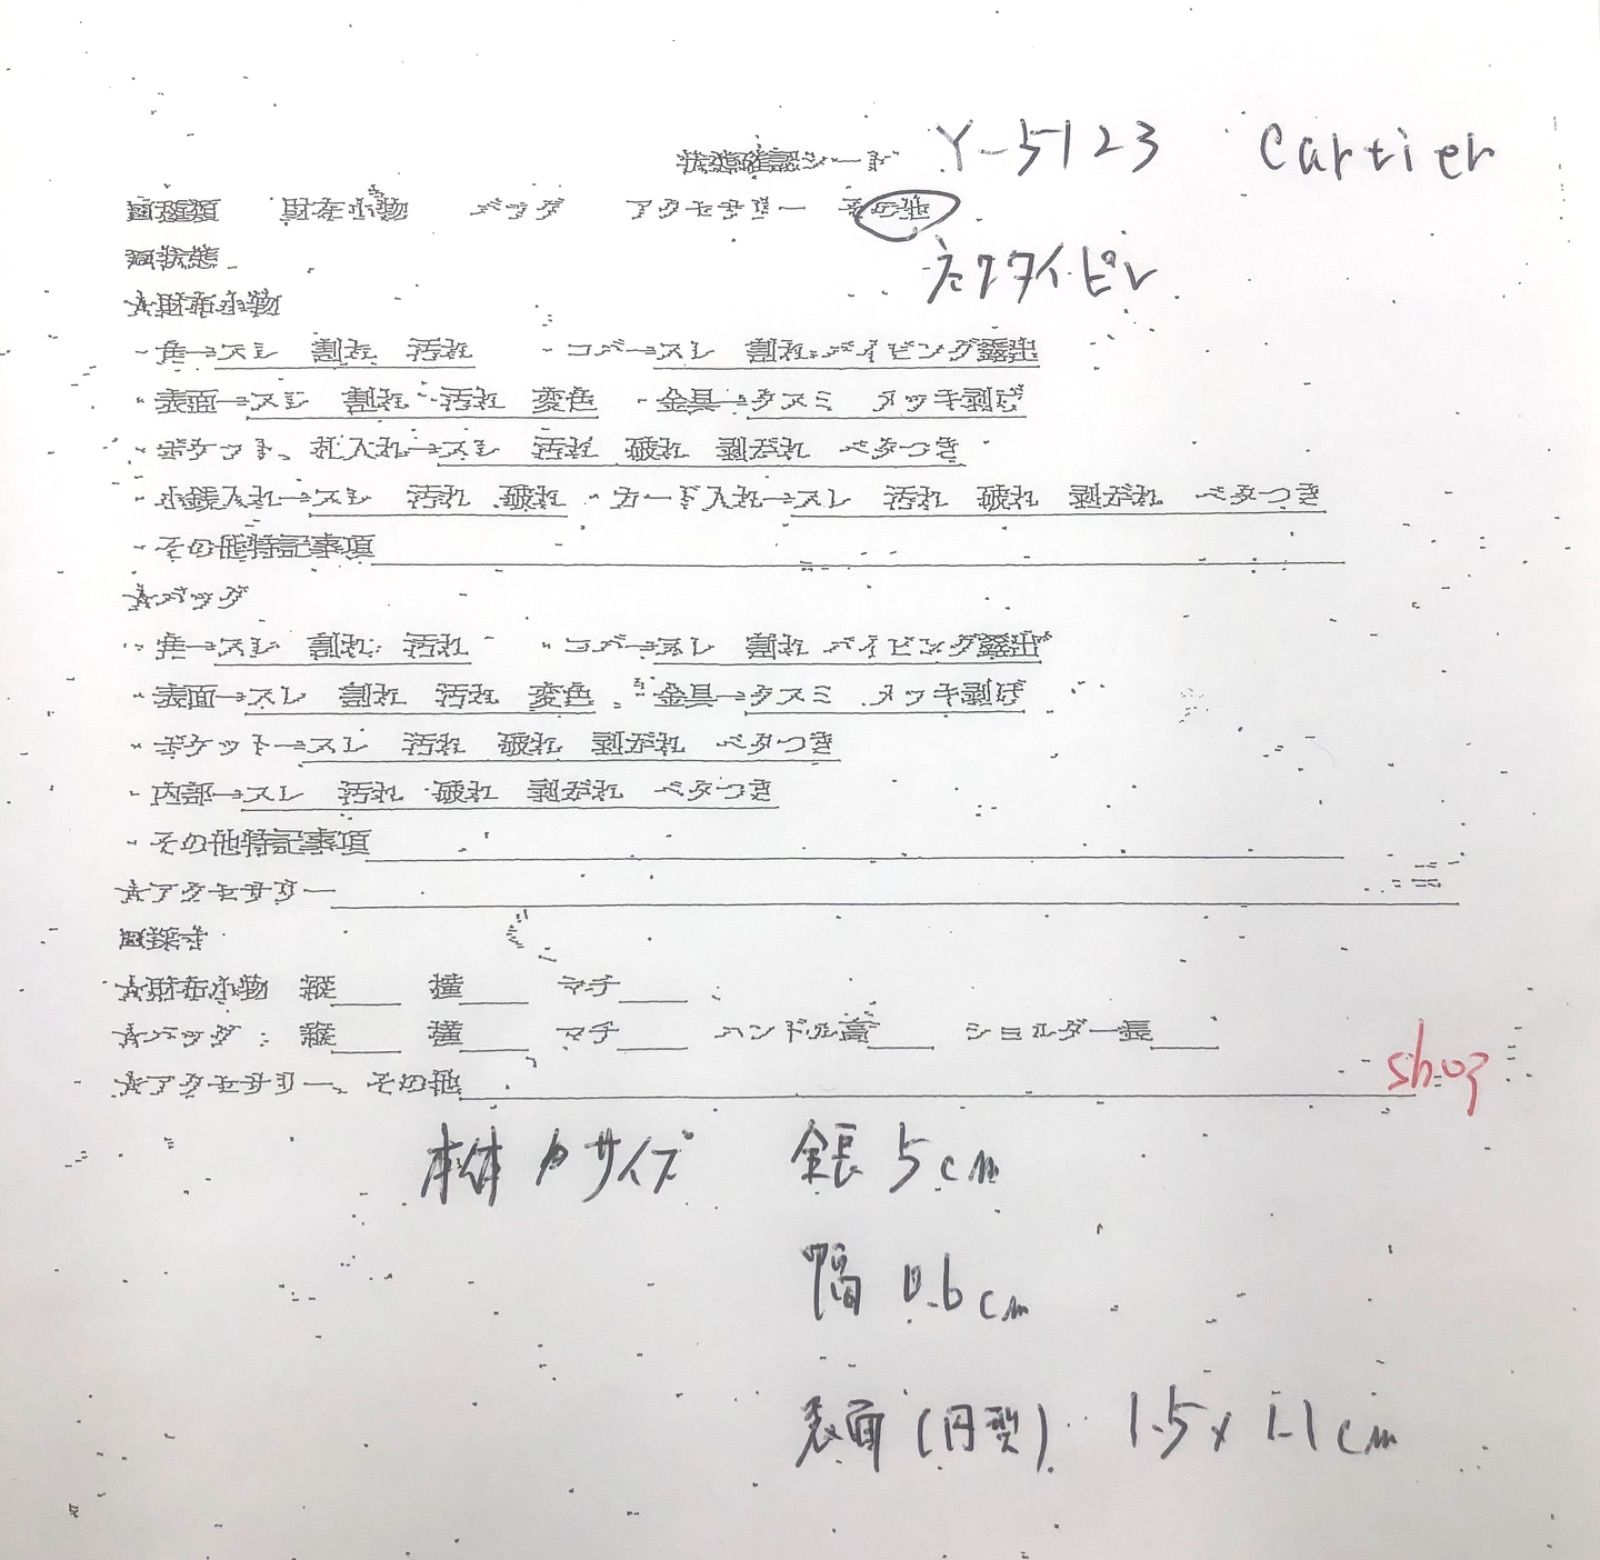 状態確認シート Y-5123 Cartier
■種類 財布小物 バッグ アクセサリー その他
ネクタイピン
■状態
☆財布小物
・角→スレ 割れ 汚れ ・コバ→スレ 割れ パイピング露出
・表面→スレ 割れ 汚れ 変色 ・金具→クスミ メッキ剥げ
・ポケット、札入れ→スレ 汚れ 破れ 剥がれ ベタつき
・小銭入れ→スレ 汚れ 破れ ・カード入れ→スレ 汚れ 破れ 剥がれ ベタつき
・その他特記事項
☆バッグ
・角→スレ 割れ 汚れ ・コバ→スレ 割れ パイピング露出
・表面→スレ 割れ 汚れ 変色 ・金具→クスミ メッキ剥げ
・ポケット→スレ 汚れ 破れ 剥がれ ベタつき
・内部→スレ 汚れ 破れ 剥がれ ベタつき
・その他特記事項
☆アクセサリー
■採寸
☆財布小物 縦 横 マチ
☆バッグ 縦 横 マチ ハンドル高 ショルダー長
☆アクセサリー、その他
本体のサイズ 全長 5cm
幅 0.6cm
表面(円型) 1.5x1.1cm